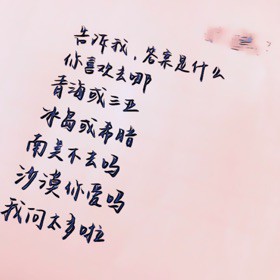 告诉我，答案是什么
你喜欢去哪
青海或三亚
冰岛或希腊
南美不去吗
沙漠你爱吗
我问太多啦